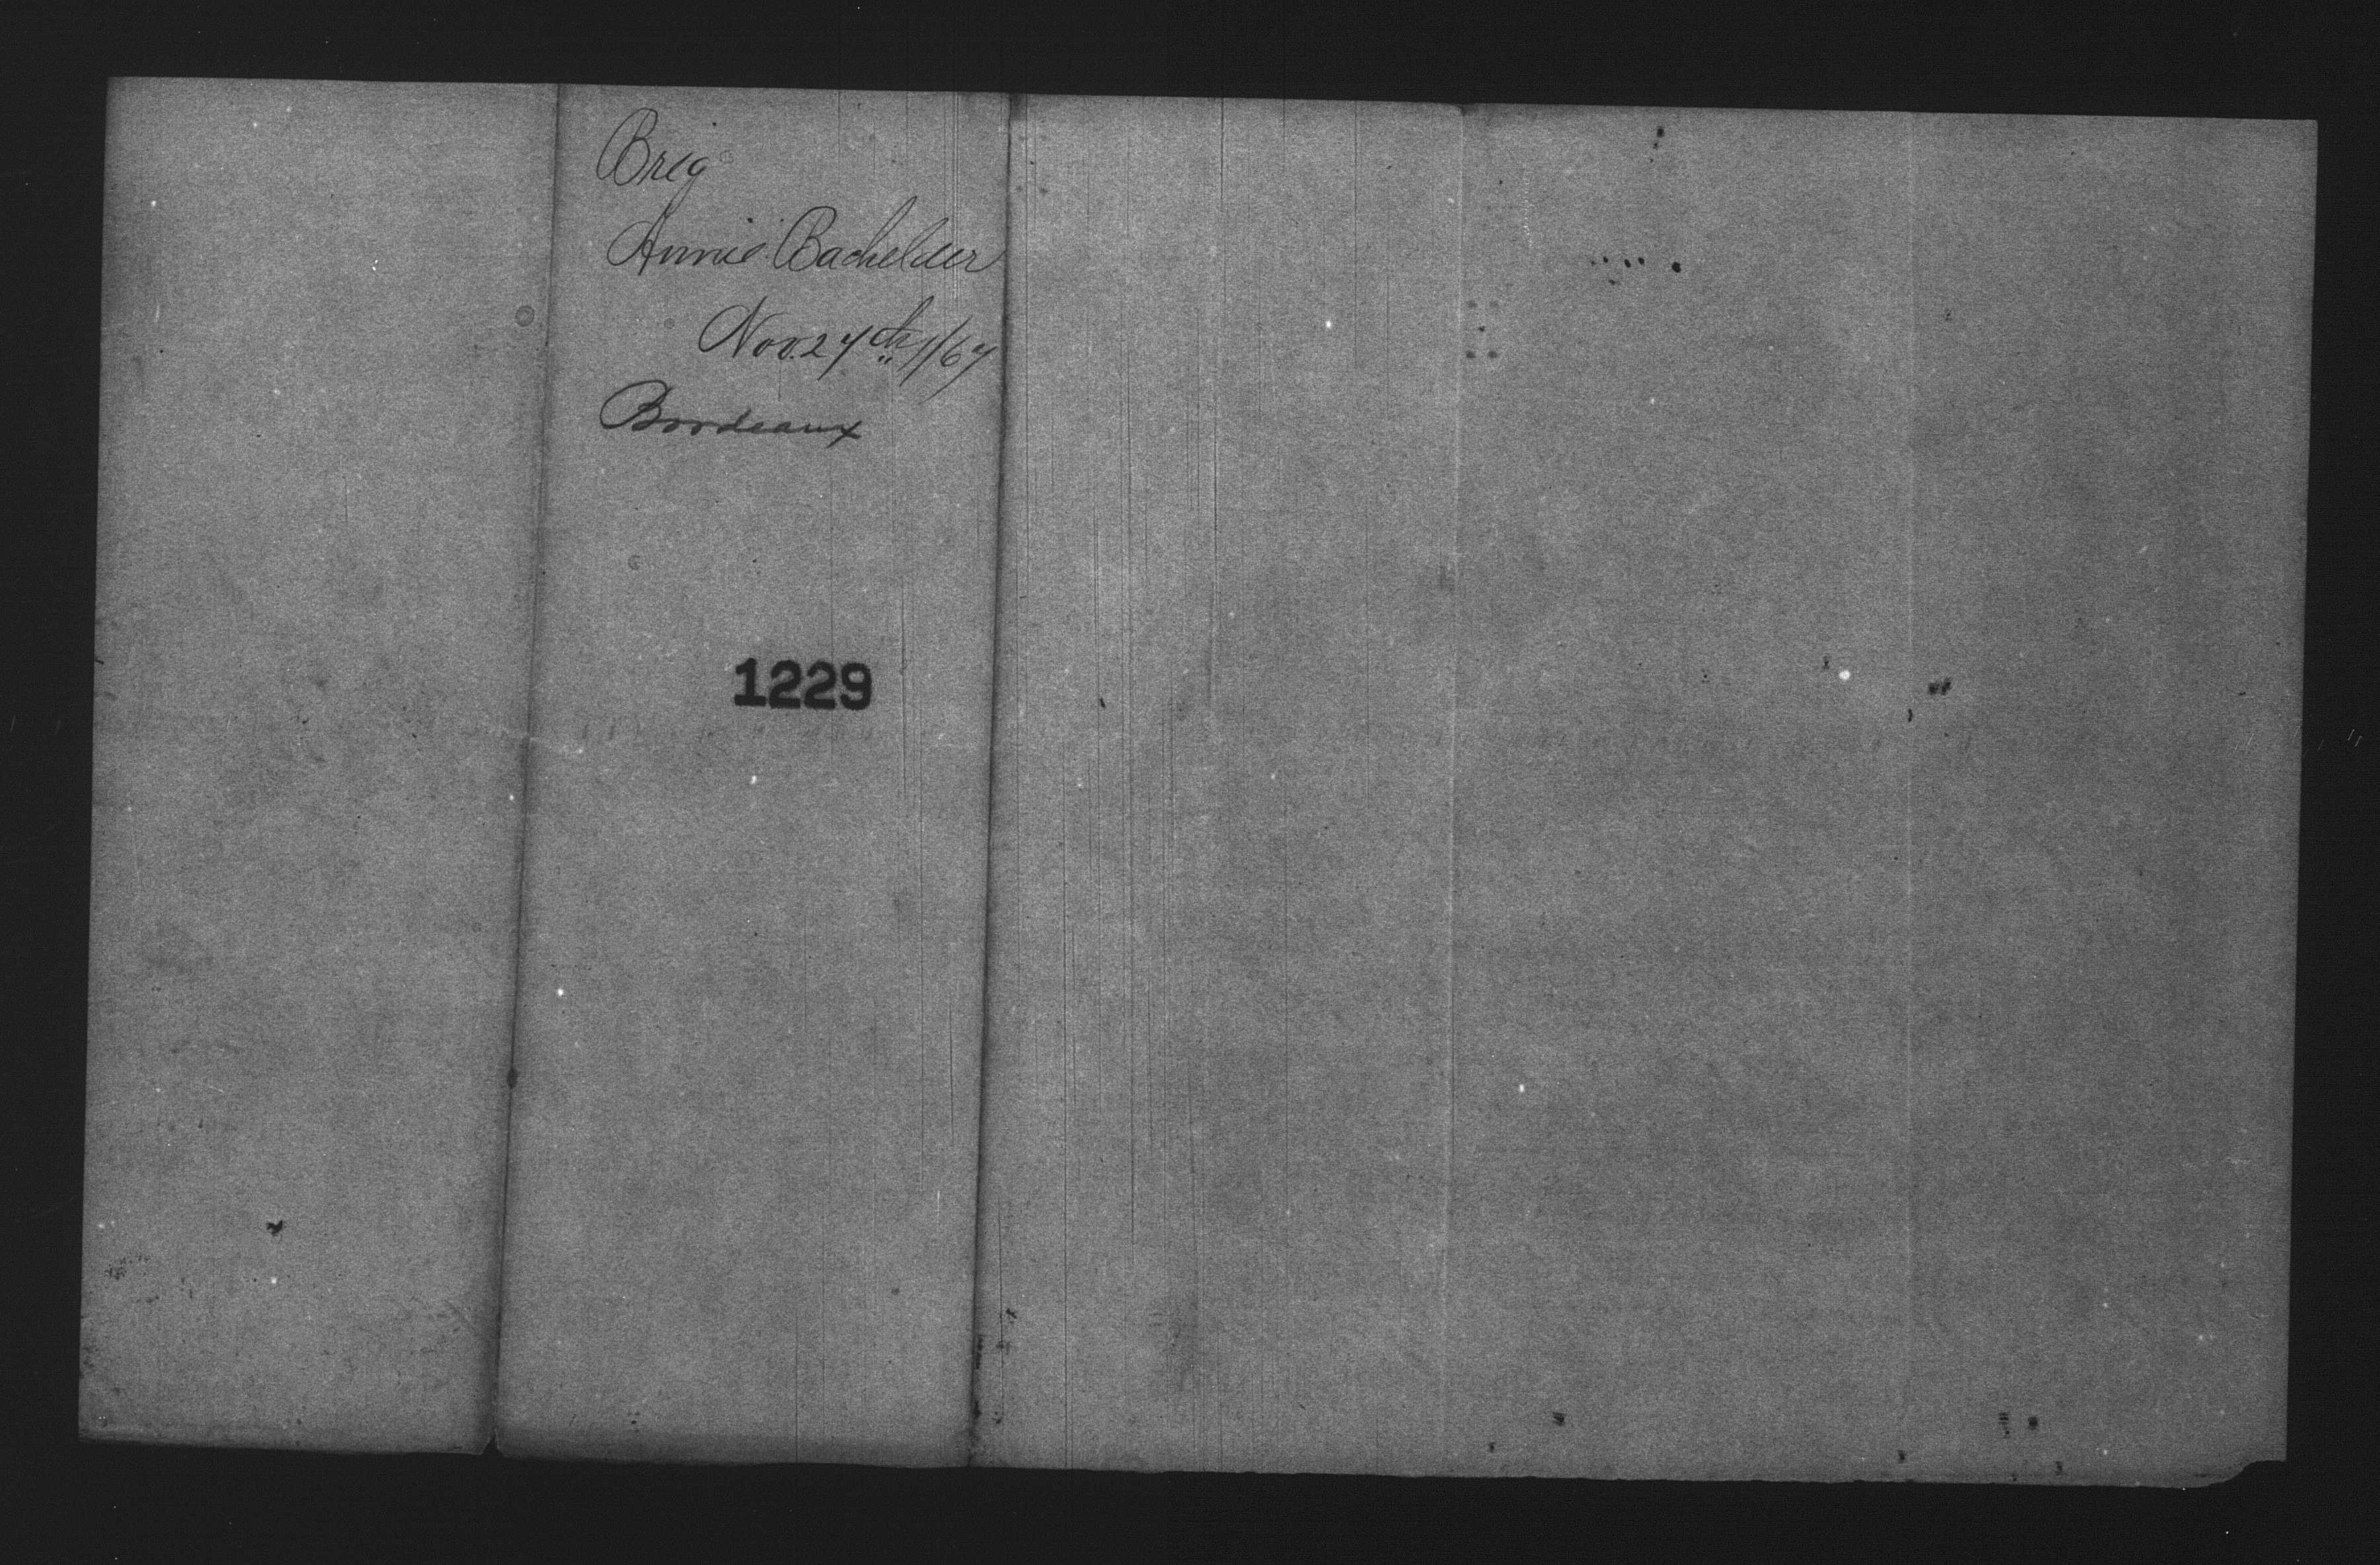 Brig
Annie Bachelder
Nov. 27th 1/67
Bordeaux
1229